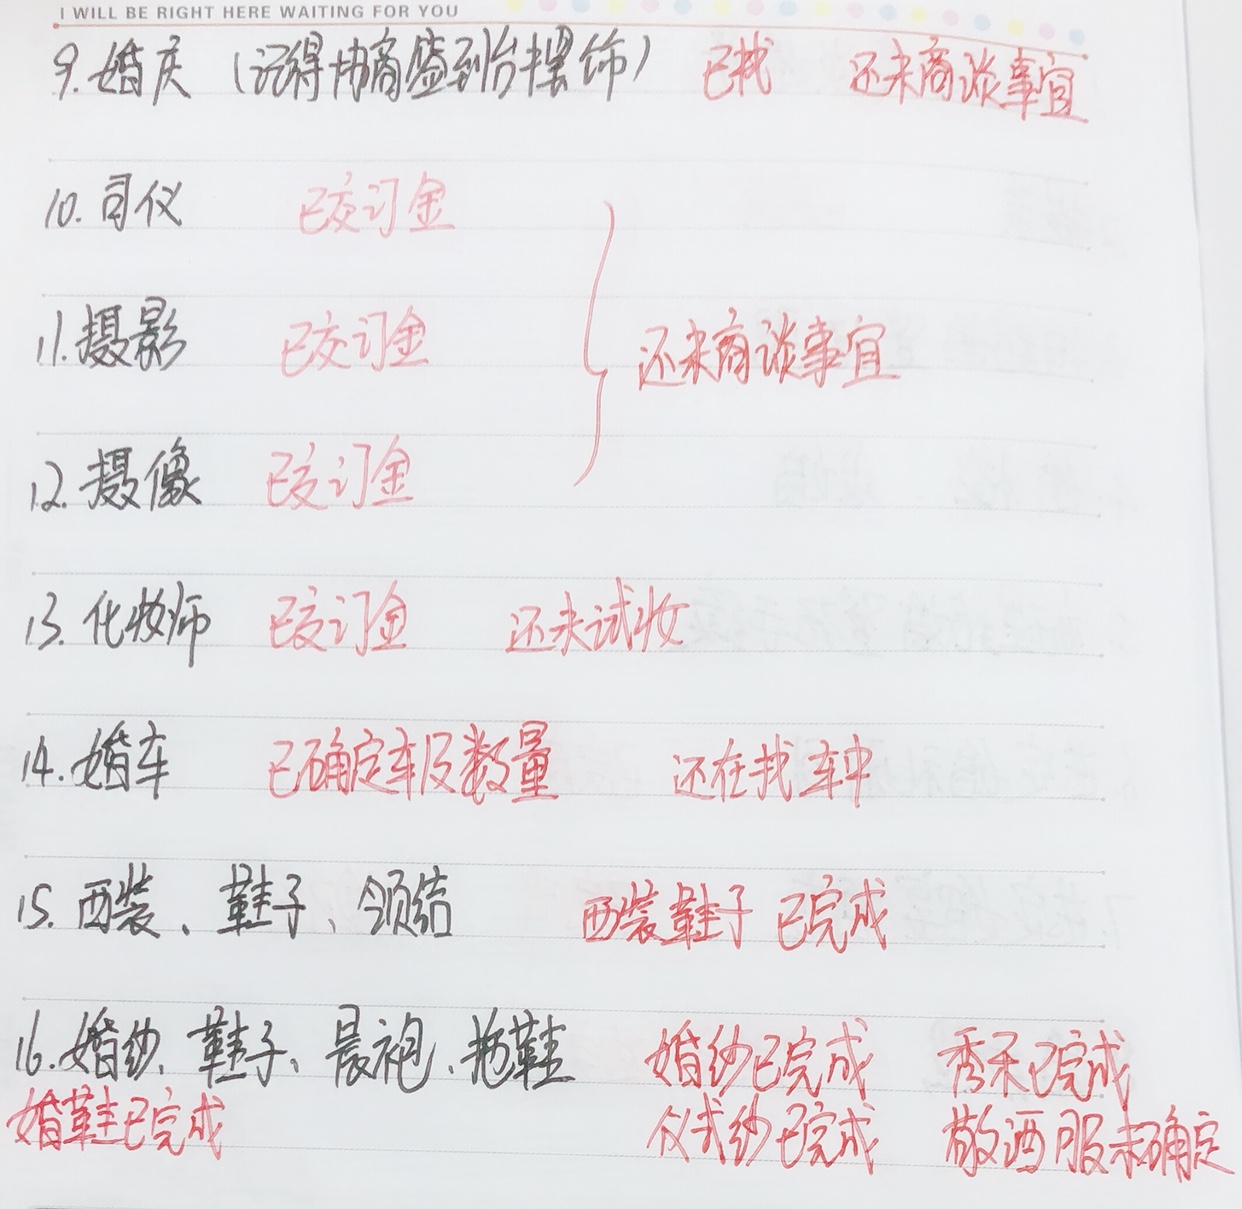 I WILL BE RIGHT HERE WAITING FOR YOU
9. 婚庆（记得协商签到台摆饰） 已找 还未商谈事宜
10. 司仪 已交订金
11. 摄影 已交订金 还未商谈事宜
12. 摄像 已交订金
13. 化妆师 已交订金 还未试妆
14. 婚车 已确定车及数量 还在找车中
15. 西装、鞋子、领结 西装鞋子已完成
16. 婚纱、鞋子、晨袍、拖鞋 婚纱已完成 秀禾已完成
婚鞋已完成 仪式纱已完成 敬酒服未确定